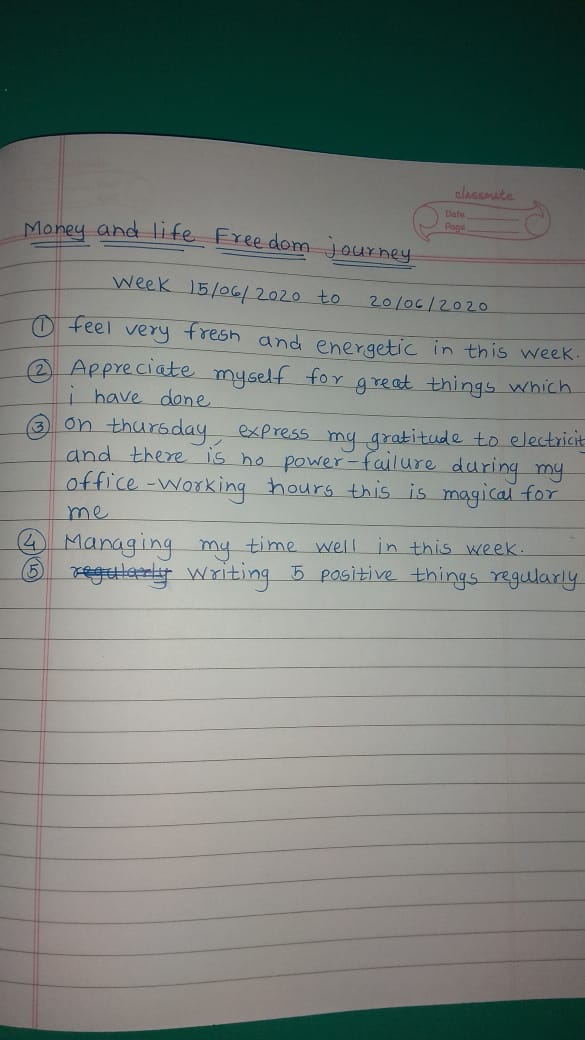 classmate
Date
Page
Money and life Freedom journey
Week 15/06/2020 to 20/06/2020
① feel very fresh and energetic in this week.
② Appreciate myself for great things which
i have done
③ on thursday, express my gratitude to electricit
and there is no power-failure during my
office-working hours this is magical for
me
④ Managing my time well in this week.
⑤ regularly writing 5 positive things regularly